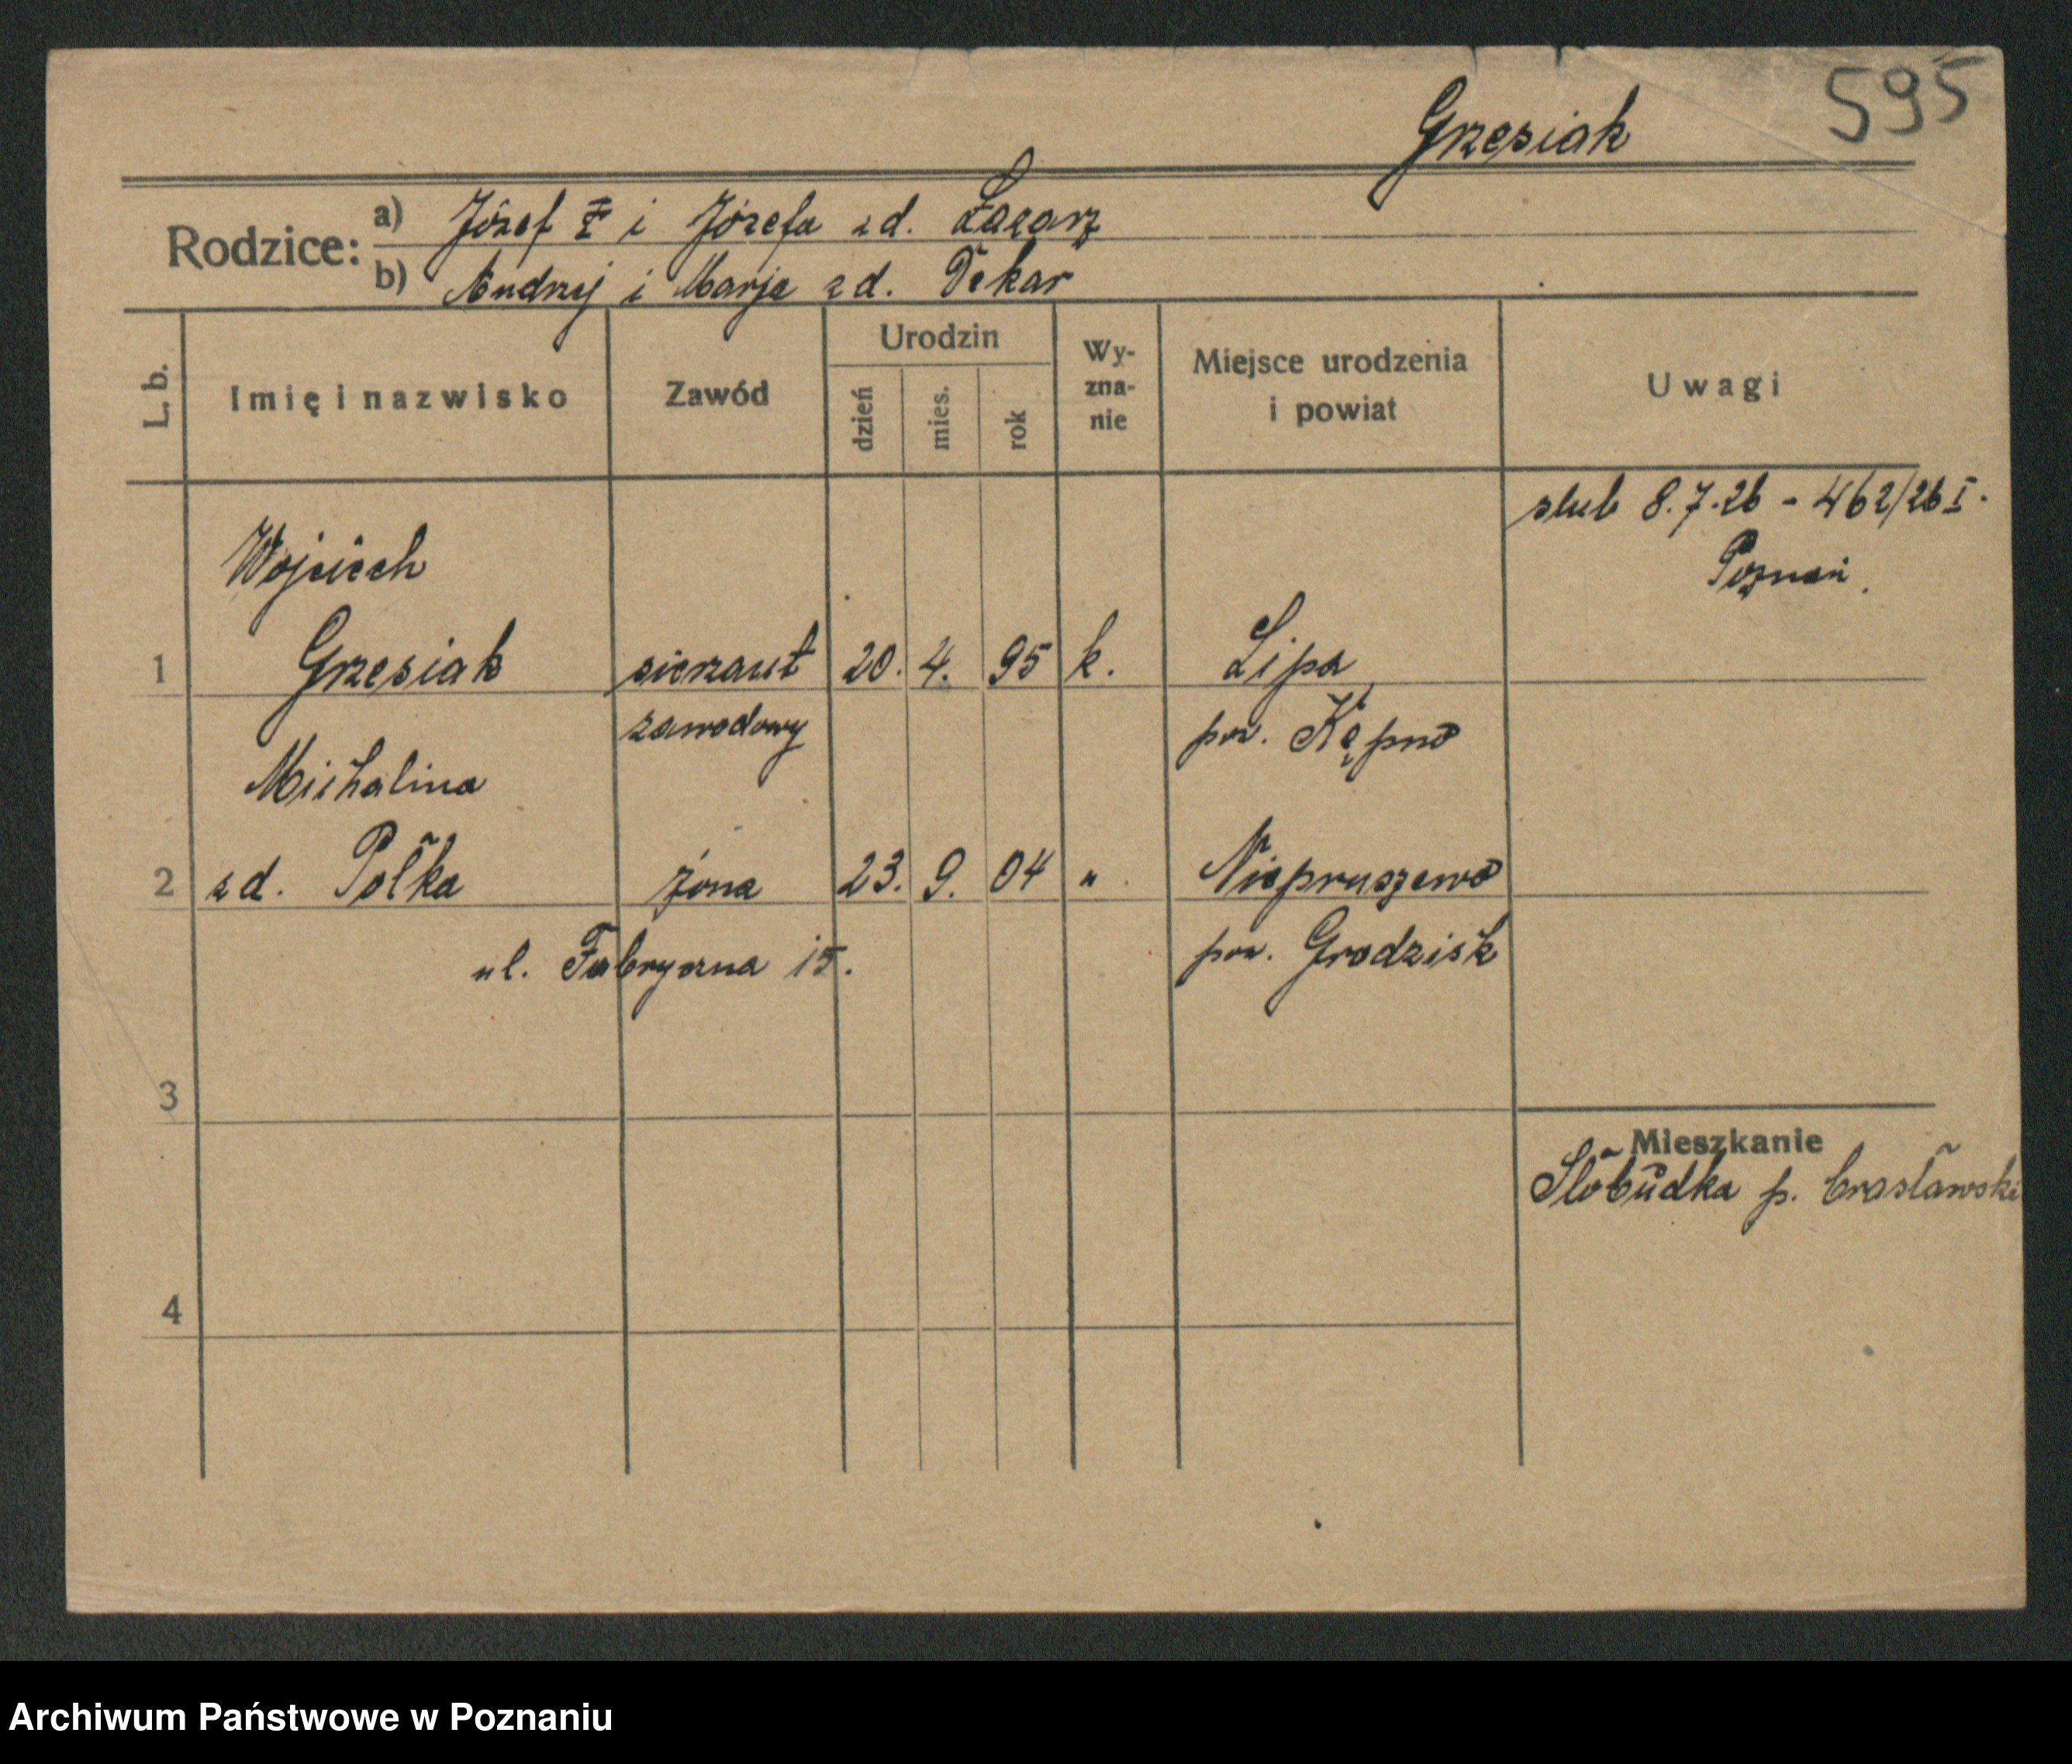 595
Grzesiak
Rodzice: a) Józef I i Józefa zd. Łacarz
b) Andrzej i Marja zd. Dekar
L. b.
Imię i nazwisko
Zawód
Urodzin
dzień
mies.
rok
Wy-
zna-
nie
Miejsce urodzenia
i powiat
Uwagi
ślub 8.7.26 - 462/26 I.
Poznań.
Wojciech
1 Grzesiak sierżant 20. 4. 95 k. Lipa
zawodowy pow. Kępno
Michalina
2 zd. Polka żona 23. 9. 04 " Niepruszewo
ul. Fabryczna 15. pow. Grodzisk
3
Mieszkanie
Słobudka p. brasławski
4
Archiwum Państwowe w Poznaniu